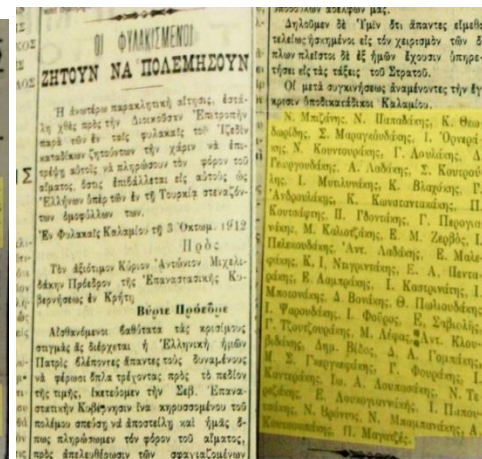 ΟΙ ΦΥΛΑΚΙΣΜΕΝΟΙ
ΖΗΤΟΥΝ ΝΑ ΠΟΛΕΜΗΣΟΥΝ
Ἡ ἀνωτέρω παρακλητική αἴτησις, ἐστά-
λη χθὲς πρὸς τὴν Διοικοῦσαν Ἐπιτροπὴν
παρὰ τῶν ἐν ταῖς φυλακαῖς τοῦ Ἰζεδὶν
καταδίκων ζητούντων τὴν χάριν νὰ ἐπι-
τρέψῃ αὐτοῖς νὰ πληρώσουν τὸν φόρον τοῦ
αἵματος, ὅστις ἐπιβάλλεται εἰς αὐτοὺς ὡς
Ἑλλήνων ὑπὲρ τῶν ἐν τῇ Τουρκίᾳ στεναζόν-
των ὁμοφύλλων των.
Ἐν Φυλακαῖς Καλαμίου τῇ 3 Ὀκτωμ. 1912
Πρὸς
Τὸν ἀξιότιμον Κύριον Ἀντώνιον Μιχελι-
δάκην Πρόεδρον τῆς Ἐπαναστασικῆς Κυ-
βερνήσεως ἐν Κρήτῃ
Κύριε Πρόεδρε
Αἰσθανόμενοι βαθύτατα τὰς κρισίμους
στιγμὰς ἃς διέρχεται ἡ Ἑλληνικὴ ἡμῶν
Πατρὶς βλέποντες ἅπαντας τοὺς δυναμένους
νὰ φέρωσι ὅπλα τρέχοντας πρὸς τὸ πεδίον
τῆς τιμῆς, ἱκετεύομεν τὴν Σεβ. Ἐπανα-
στατικὴν Κυβέρνησιν ἵνα κηρυσσομένου τοῦ
πολέμου σπεύσῃ νὰ ἀποστείλῃ καὶ ἡμᾶς ὅ-
πως πληρώσωμεν τὸν φόρον τοῦ αἵματος,
πρὸς ἀπελευθέρωσιν τῶν σφαγιαζομένων
ἀδελφῶν μας.
Δηλοῦμεν δὲ Ὑμῖν ὅτι ἅπαντες εἴμεθα
τελείως ἠσκημένοι εἰς τὸν χειρισμὸν τῶν ὅ-
πλων πλεῖστοι δὲ ἐξ ἡμῶν ἔχουσιν ὑπηρε-
τήσει εἰς τὰς τάξεις τοῦ Στρατοῦ.
Οἱ μετὰ συγκινήσεως ἀναμένοντες τὴν ἔγ-
κρισιν ὑποδικατάδικοι Καλαμίου.
Ν. Μπιζάνης, Ν. Παπαδάκης, Κ. Θεο-
δωρίδης, Σ. Μαραγκουδάκης, Ι.
Ν. Κουντουράκης, Γ. Λουλάκης, Δ.
Γεωργουδάκης, Α. Λαδάκης, Σ. Κουτρού-
λης, Ι. Μυτιλυνάκης, Κ. Βλαχάκης, Γ.
Ἀνδρουλάκης, Κ. Κωνσταντακάκης, Π.
Κουτσάφτης, Π. Γδοντάκης, Γ. Περογια-
νάκης, Μ. Καλιοτζάκης, Ε. Μ. Ζερβός, Ι.
Πελεκουδάκης, Ἀντ. Λαδάκης, Ε. Μαλε-
φάκης, Κ. Ι. Ντιγριντάκης, Ε. Α. Πεντα-
ράκης, Ε. Λαμπράκης, Ι. Καστρινάκης, Ι.
Μποτονάκης, Δ. Βονάκης, Θ. Πωλιουδάκης
Ι. Ψαρουδάκης, Ι. Φοῦρος, Ε. Σαβιολῆς,
Γ. Τζουτζουράκης, Μ. Λέφας, Ἀντ. Κλου-
βιδάκης, Δημ. Βίδος, Δ. Α. Γομπάκης,
Μ. Σ. Γεωργακάκης, Γ. Φουράκης, Ι.
Καντεράκης, Ἰω. Α. Λουπασάκης, Ν. Τε-
ροζάκης, Ε. Λουκογιαννάκης, Ι. Παπου-
τσάκης, Ν. Βρόντος, Ν. Μπομπανάκης, Α.
Κουτσουπάκης, Π. Μαγιατζές.